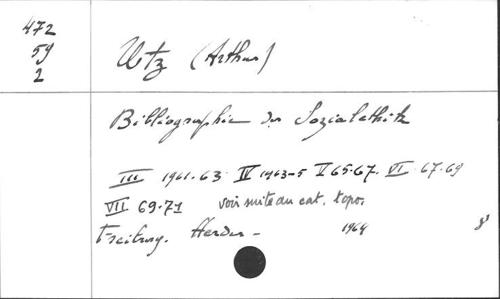 472
59
2
Utz (Arthur)
Bibliographie der Sozialethik
III 1961-63 IV 1963-5 V 65-67. VI 67-69
VII 69-71 voir suite au cat. topo.
Freiburg. Herder - 1964 8°